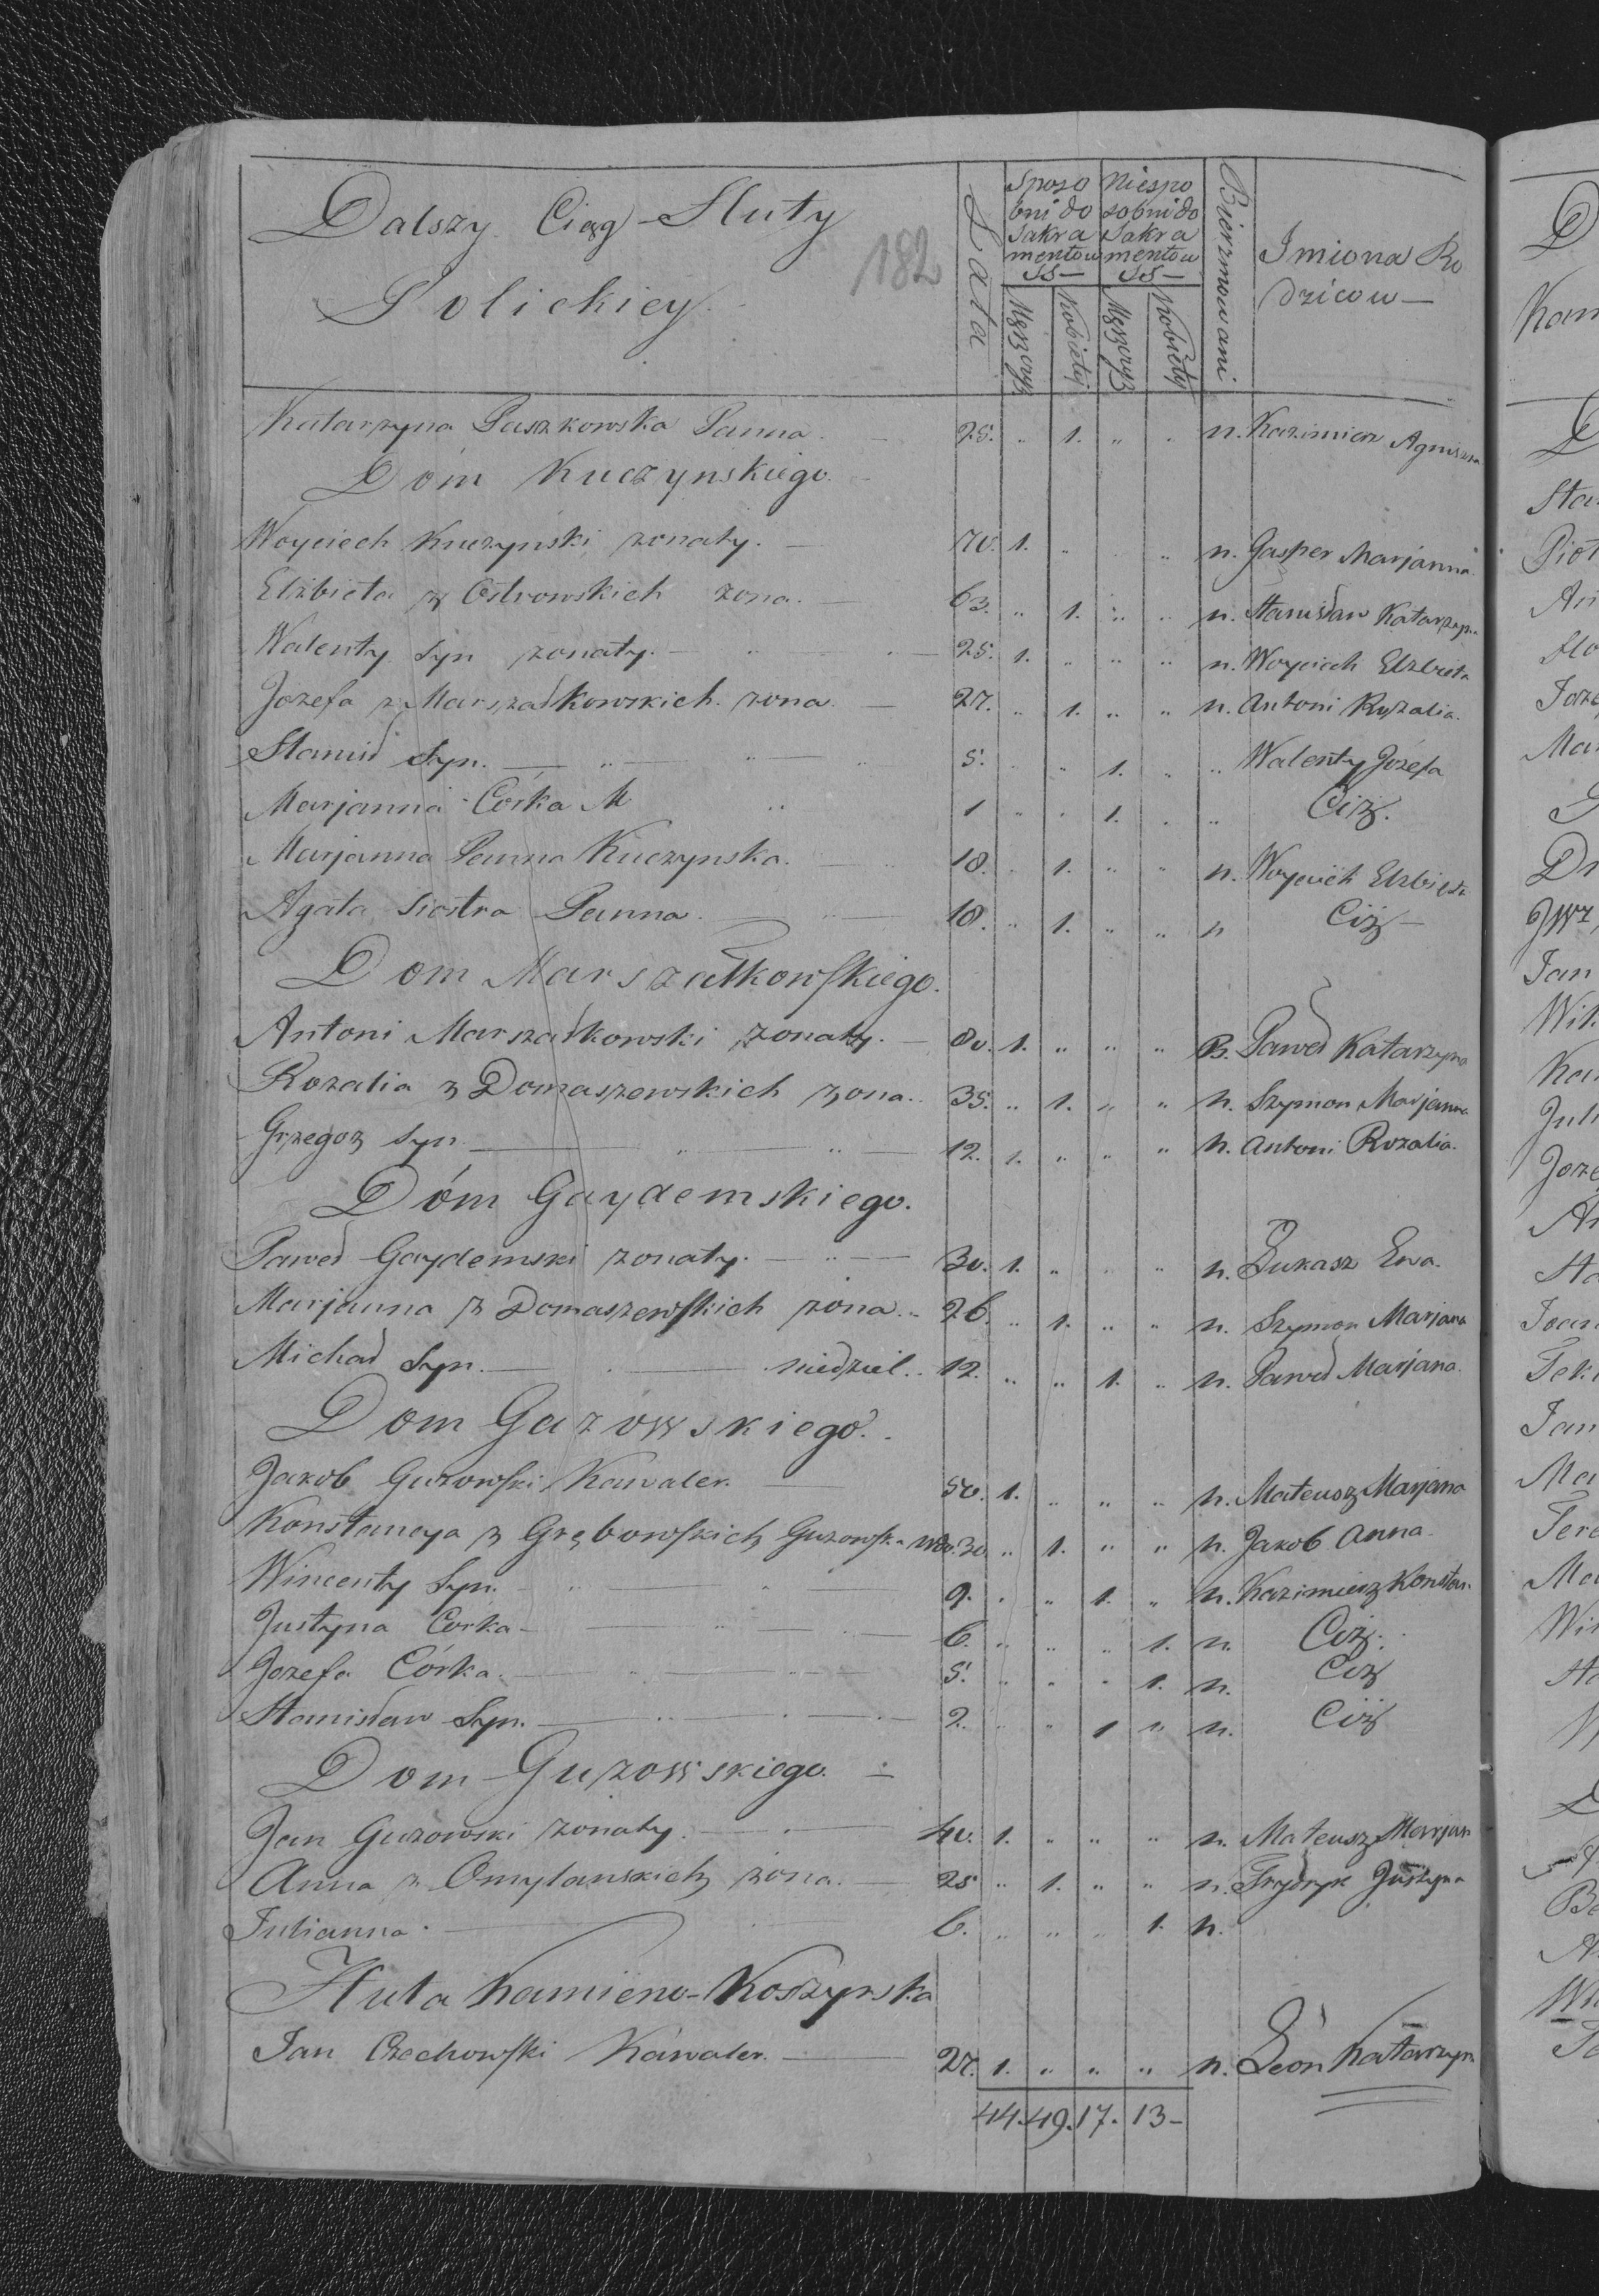 Dalszy Ciąg Huty
Solickiey
182
Lata
Sposobni do Sakramentow SS —
Niesposobni do Sakramentow SS —
Męzczyz Kobiety Męzczyz Kobiety
Bierzmowani
Imiona Rodzicow —
Katarzyna Paszkowska Panna. — 25. „ 1. „ „ n. Kazimierz Agniszka
Dóm Kuczynskiego.
Woyciech Kuczynski zonaty. — 70. 1. „ „ n. Gasper Marjanna
Elzbieta z Ostrowskich zona. — 63. „ 1. „ „ n. Stanisław Katarzyn.
Walenty Syn zonaty. — 25. 1. „ „ „ n. Woyciech Elzbieta
Jozefa z Marszałkowskich zona — 27. „ 1. „ „ n. Antoni Rozalia.
Stanisł Syn. — 5. „ „ 1. „ „ Walenty Józefa
Marjanna Corka M „ 1 „ „ 1. „ „ Ciż.
Marjanna Panna Kuczynska. — 18. „ 1. „ „ n. Woyciech Elzbieta
Agata Siostra Panna. — 18. „ 1. „ „ n Ciż —
Dom Marszałkowskiego.
Antoni Marszałkowski zonaty. — 80. 1. „ „ „ B. Paweł Katarzyna
Rozalia z Domaszewskich zona.. 35. „ 1. „ „ n. Szymon Marjanna
Grzegoz Syn — 12. 1. „ „ „ n. Antoni Rozalia.
Dóm Gaydemskiego.
Paweł Gaydemski zonaty. — 30. 1. „ „ „ n. Łukasz Ewa.
Marjanna z Domaszewskich zona.. 26. „ 1. „ „ n. Szymon Marjana
Michał Syn. — niedziel.. 12. „ „ 1. „ n. Paweł Marjana.
Dom Gazowskiego.
Jakob Guzowski Kawaler. — 50. 1. „ „ „ n. Mateusz Marjana
Konstancya z Grębowskich Guzowska wdo. 30. „ 1. „ „ n. Jakob Anna.
Wincenty Syn. — 9. „ „ 1. „ n. Kazimierz Konstan.
Justyna Corka — 6. „ „ „ 1. n. Ciż.
Jozefa Córka. — 5. „ „ „ 1. n. Ciż
Stanisław Syn. — 2. „ „ 1 „ n. Ciż
Dom Guzowskiego. —
Jan Guzowski zonaty. — 40. 1. „ „ „ n. Mateusz Marjan
Anna z Omylanskich zona. — 25 „ 1. „ „ n. Frydryk Justyna
Julianna. — 6. „ „ „ 1. n.
Huta Kamieno-Koszyrska
Jan Czechowski Kawaler. — 27. 1. „ „ „ n. Leon Katarzyn
44. 49. 17. 13 —